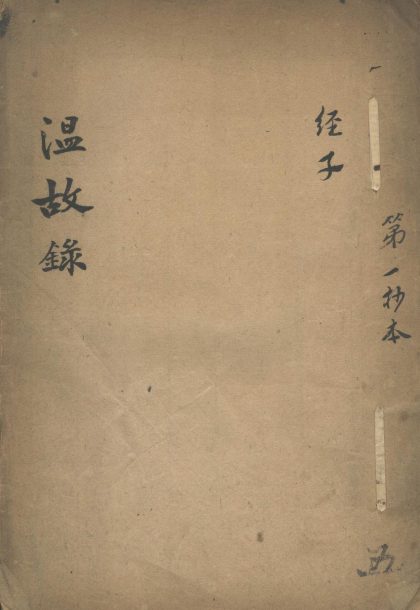 第一抄本
经子
温故錄